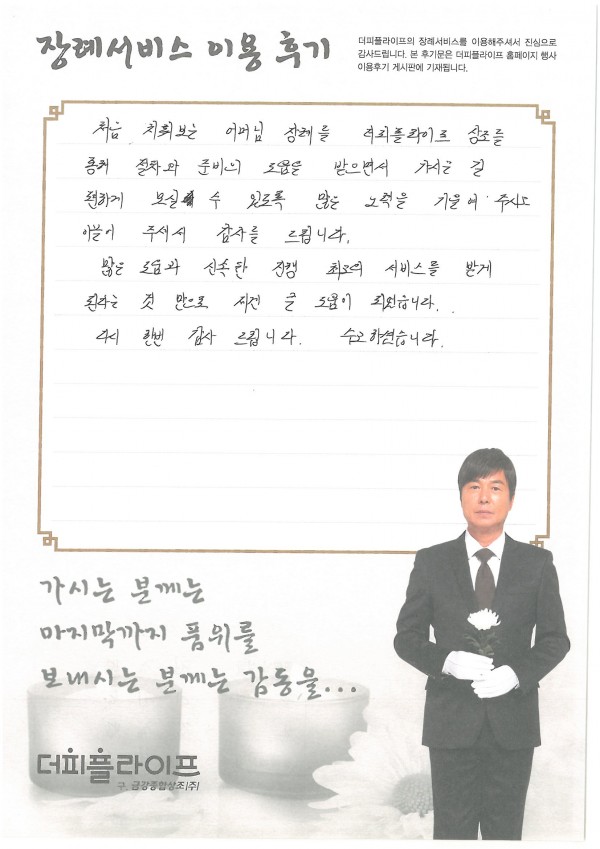 장례서비스 이용 후기
더피플라이프의 장례서비스를 이용해주셔서 진심으로
감사드립니다. 본 후기문은 더피플라이프 홈페이지 행사
이용후기 게시판에 기재됩니다.
처음 치뤄보는 어머님 장례를 더피플라이프 상조를
통해 절차와 준비의 도움을 받으면서 가시는 길
편하게 모실 수 있도록 많은 노력을 기울여 주시고
이끌어 주셔서 감사를 드립니다.
많은 도움과 신속한 진행 최고의 서비스를 받게
된다는 것 만으로 저겐 큰 도움이 되었습니다.
다시 한번 감사 드립니다. 수고하셨습니다.
가시는 분께는
마지막까지 품위를
보내시는 분께는 감동을...
더피플라이프
구. 금강종합상조(주)